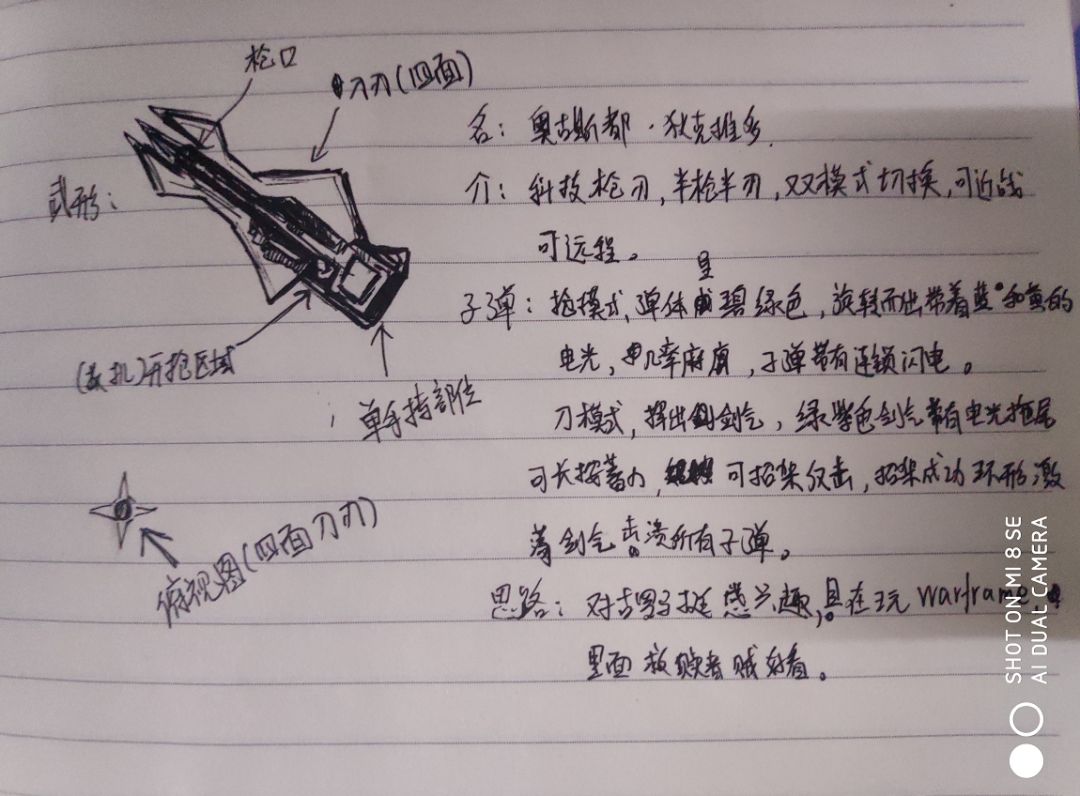 枪口
刀刃(四面)
名：奥古斯都·狄克推多.
武形：
介：科技枪刃,半枪半刃,双模式切换,可近战
可远程。
子弹：抢模式,弹体呈碧绿色,旋转而出带着蓝和黄的
电光,几率麻痹,子弹带有连锁闪电。
(扳机)开抢区域
单手持部位
刀模式,挥出剑气,绿紫色剑气带有电光拖尾
可长按蓄力,可招架反击,招架成功环形激
荡剑气击溃所有子弹。
俯视图(四面刀刃)
思路：对古罗挺感兴趣,且在玩warframe
里面救赎者贼好看。
SHOT ON MI 8 SE
AI DUAL CAMERA